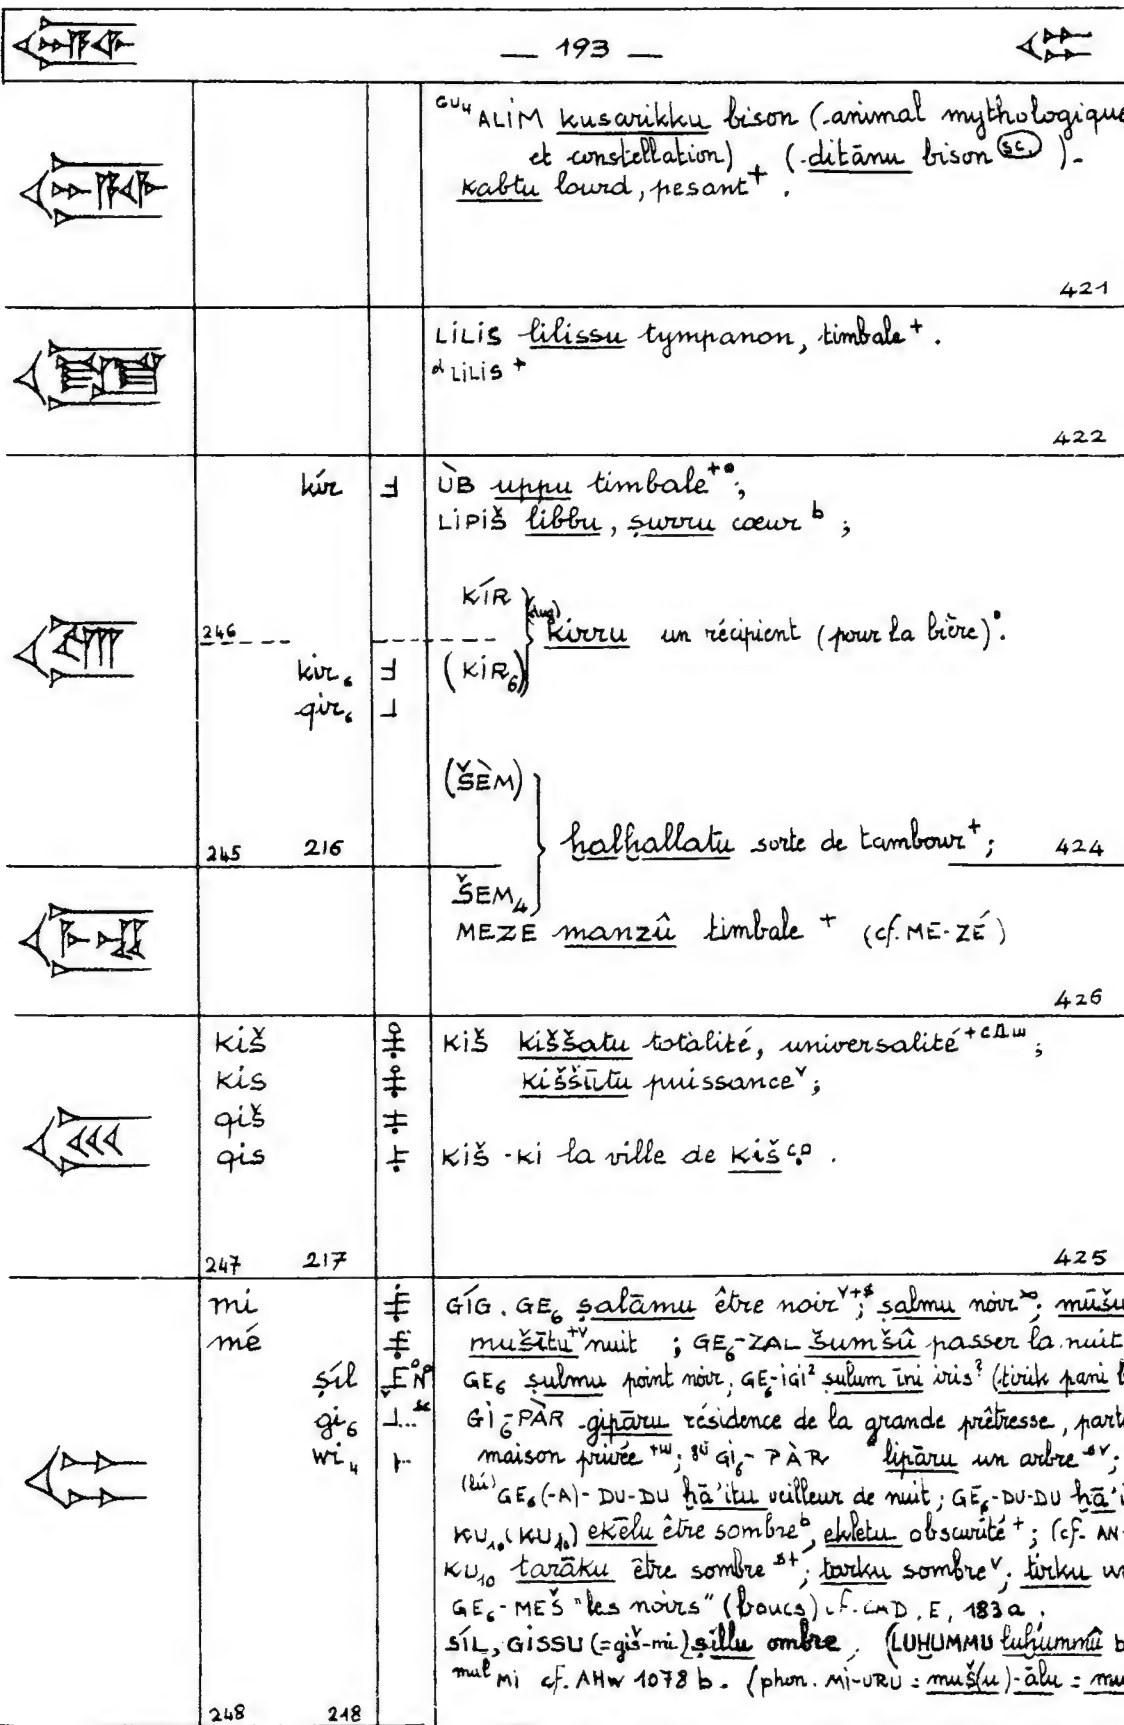 — 193 —
GU₄ ALIM kusarikku bison (animal mythologique
et constellation) (ditānu bison sc.) -
kabtu lourd, pesant⁺.
421
LILIS lilissu tympanon, timbale⁺.
ᵈLILIS⁺
422
kír ÙB uppu timbale⁺;
LIPIŠ libbu, ṣurru cœur ᵇ;
KÍR
246 (dug) kirru un récipient (pour la bière).
kir₆ (KÌR₆)
qir₆
(ŠÈM)
245 216 ḫalḫallatu sorte de tambour⁺; 424
ŠEM₄
MEZE manzû timbale⁺ (cf. ME-ZÉ)
426
kiš KIŠ kiššatu totalité, universalité⁺;
kis kiššūtu puissance ᵛ;
qiš
qis KIŠ-KI la ville de Kiš.
247 217 425
mi GÍG. GE₆ ṣalāmu être noir; ṣalmu noir; mūšu
mé mušītu nuit; GE₆-ZAL šumšû passer la nuit
ṣíl GE₆ ṣulmu point noir; GE₆-IGI² ṣulum īni iris? (tirik pani
gi₆ GI₆-PÀR gipāru résidence de la grande prêtresse,
wi₄ maison privée; GI₆-PÀR lipāru un arbre;
(lú) GE₆(-A)-DU-DU ḫā'iṭu veilleur de nuit; GE₆-DU-DU
KU₁₀(KU₁₀) ekēlu être sombre ᵇ, ekletu obscurité⁺; (cf. AN-
KU₁₀ tarāku être sombre; tarku sombre ᵛ; tirku
GE₆-MEŠ "les noirs" (boucs) cf. CAD, E, 183a.
SÍL, GISSU (=giš-mi) ṣillu ombre. (LUḪUMMU luḫummû
mul MI cf. AHw 1078 b. (phon. MI-URU = muš(u)-ālu =
248 218